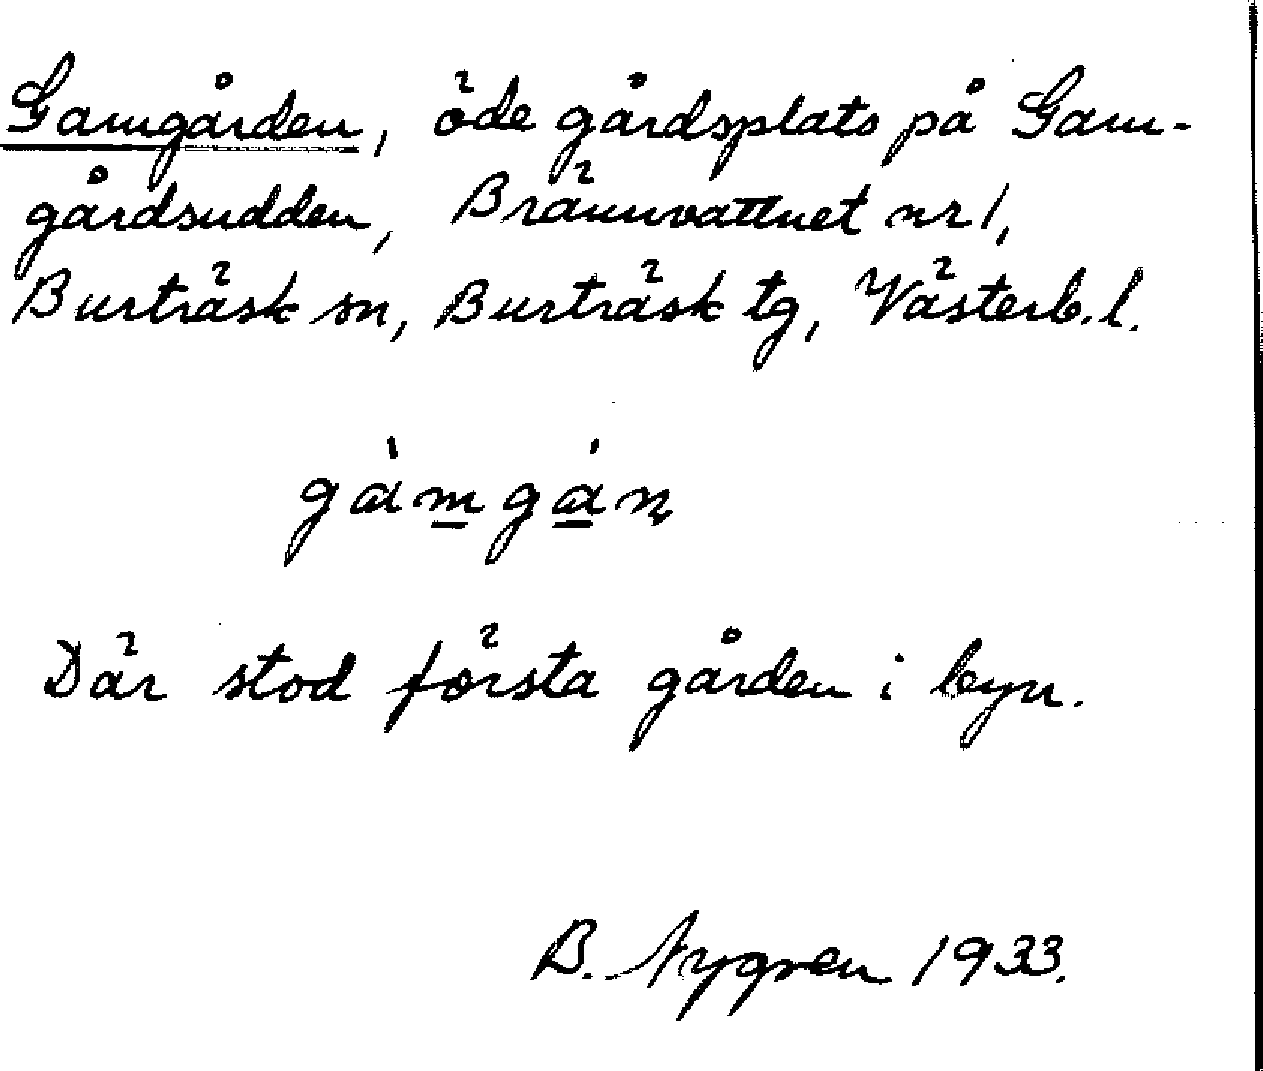 Gamgården, öde gårdsplats på Gam-
gårdsudden, Brännvattnet nr 1,
Burträsk sn, Burträsk tg, Västerb. l.
gàm̲gá̲ṇ
Där stod första gården i byn.
B. Nygren 1933.